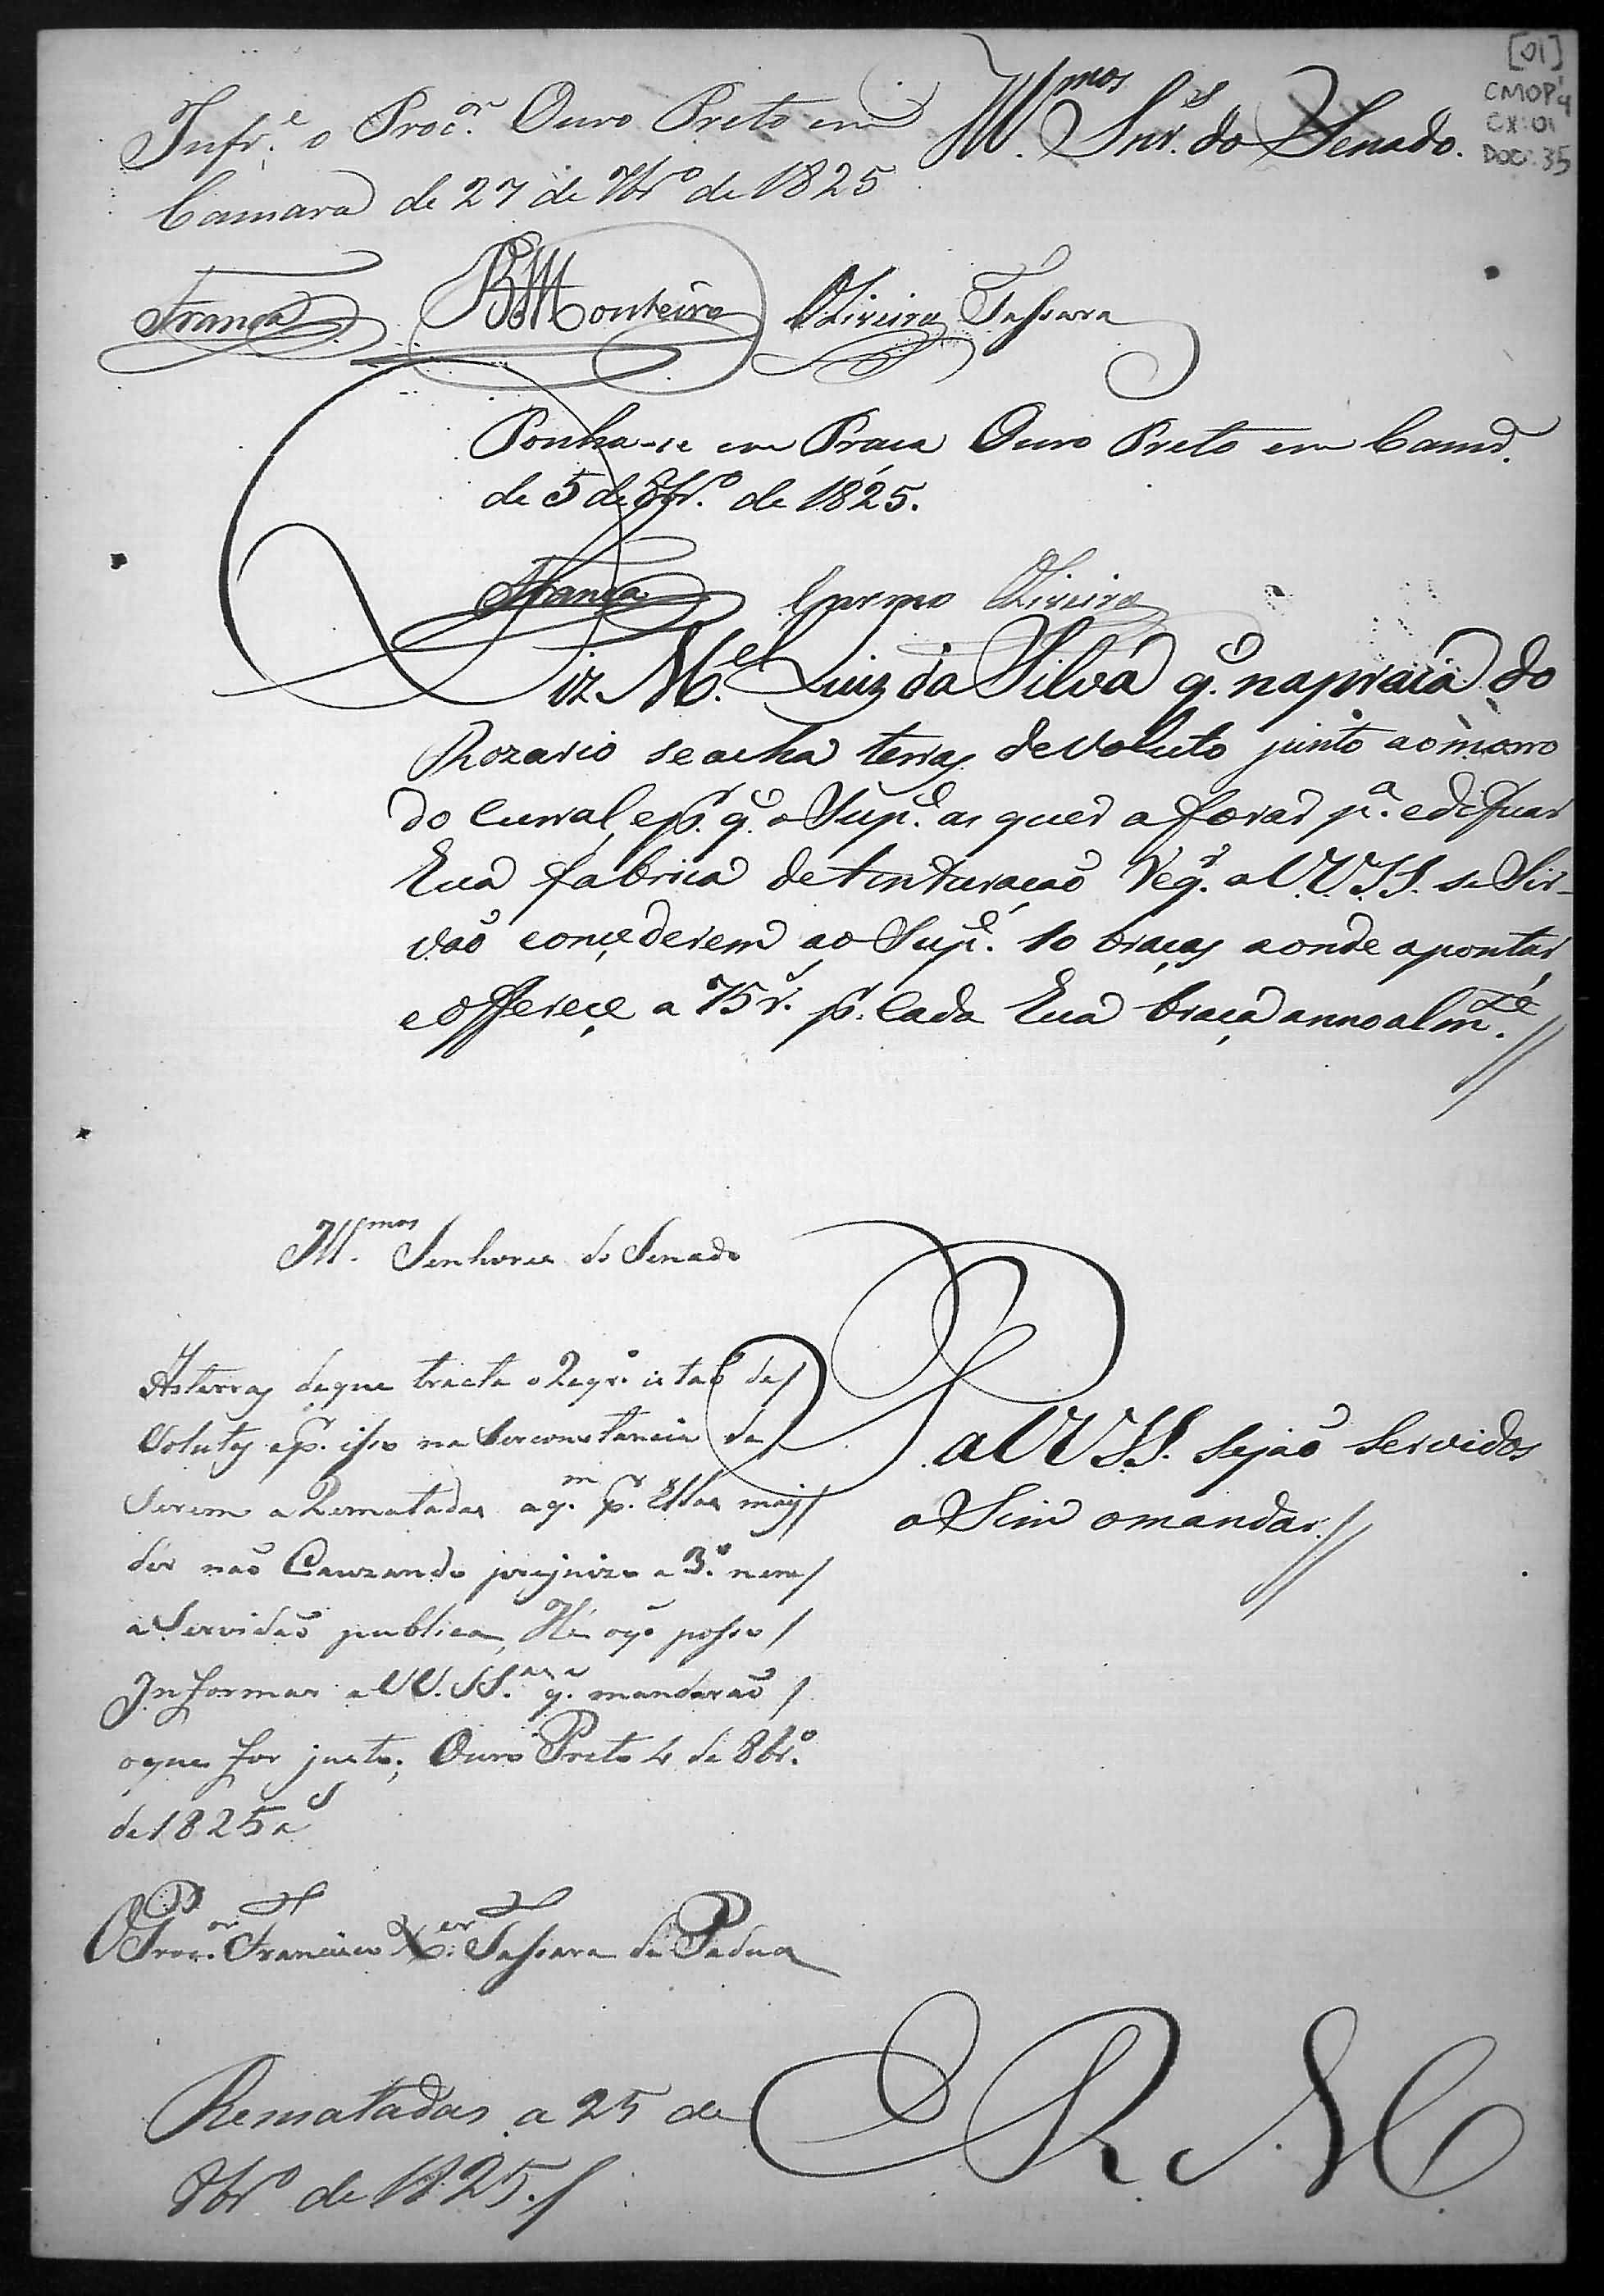 [01]
CMOP 4
CX: 01
DOC: 35
Ill.mos Snr.s do Senado.
Infr.e o Proc.or Ouro Preto em
Camara de 27 de 7br.o de 1825
França Monteiro Oliveira Tassara
Ponha-se em Praça Ouro Preto em Cam.ra
de 5 de 8br.o de 1825.
França Carmo Oliveira
Diz M.el Luiz da Silva q. na praia do
Rozario se acha terras devoluto junto ao morro
do Curral, e p.r q. o Sup.e as quer aforar p.a edificar
hua fabrica de tinturação Req.r a V.V.S.S. se Sir-
vão concederem ao Sup.e 10 braças aonde apontar
e offerece a 75 r.s p.r Cada hua braça annoalm.te //
P. a VVSS. sejão Servidos
asim o mandar. //
ERMce
Ill.mos Senhores do Senado
As terras de que tracta o Reqr.o estaõ de/
volutas e p.r isso na Circonstancia de
Serem aRematadas a q.m p.r Ellas mais/
der naõ Cauzando prejuizo a 3.o nem/
a Servidaõ publica, Hé o q. posso/
Informar a VV.SS.as q. mandaraõ/
o que for justo; Ouro Preto 4 de 8br.o
de 1825 a.s
O Proc.or Francisco X.er Tassara de Padua
Rematadas a 25 de
8br.o de 1825. /